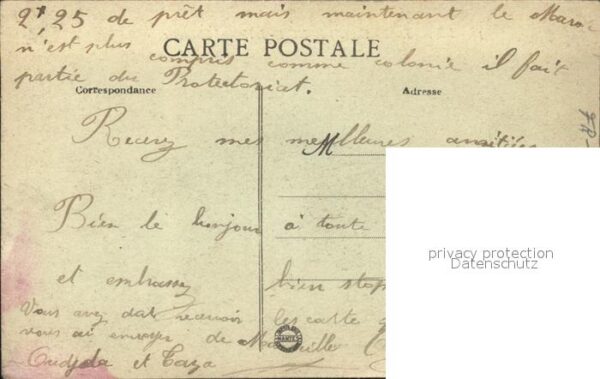 2f,25 de prêt mais maintenant le Maroc
n'est plus compris comme colonie il fait
partie du Protectoriat.
CARTE POSTALE
Correspondance
Adresse
Recevez mes meilleures amitiés
M
Bien le bonjour à toute
et embrassez bien
Vous avez dat recevoir les carte
vous ai envoyer de Marseille
Oudjda et Taza
privacy protection
Datenschutz